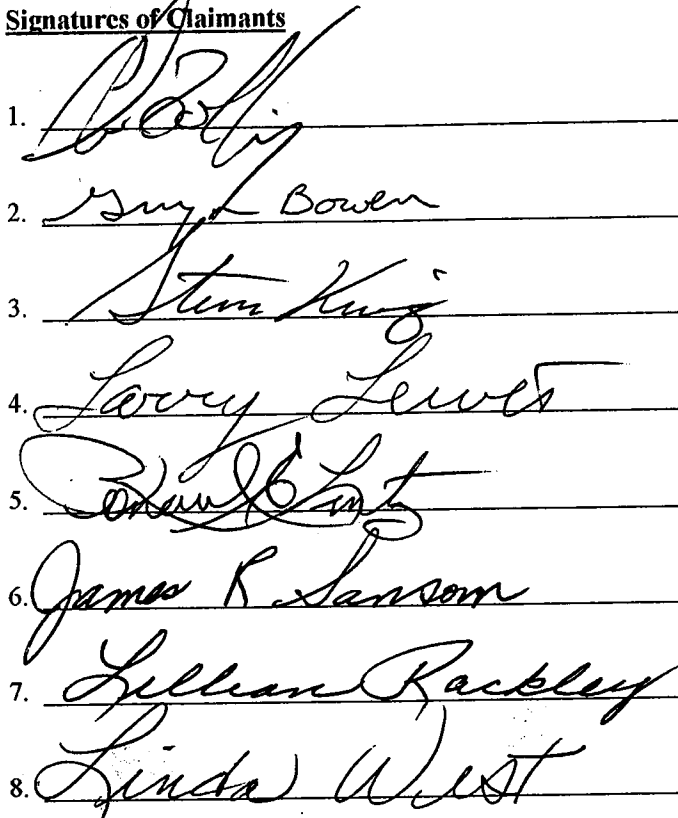 Signatures of Claimants
1.
2. Bowen
3. King
4. Larry Lewis
5.
6. James R Sansom
7. Lillian Rackley
8. Linda West